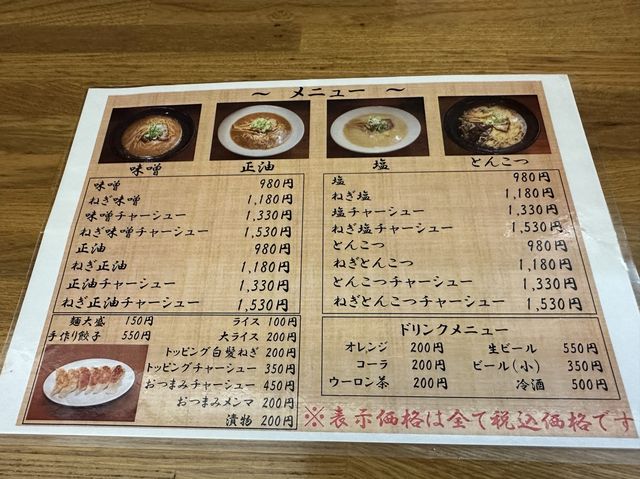 ～ メニュー ～
味噌
正油
塩
とんこつ
味噌 980円
ねぎ味噌 1,180円
味噌チャーシュー 1,330円
ねぎ味噌チャーシュー 1,530円
正油 980円
ねぎ正油 1,180円
正油チャーシュー 1,330円
ねぎ正油チャーシュー 1,530円
塩 980円
ねぎ塩 1,180円
塩チャーシュー 1,330円
ねぎ塩チャーシュー 1,530円
とんこつ 980円
ねぎとんこつ 1,180円
とんこつチャーシュー 1,330円
ねぎとんこつチャーシュー 1,530円
麺大盛 150円
手作り餃子 550円
ライス 100円
大ライス 200円
トッピング白髪ねぎ 200円
トッピングチャーシュー 350円
おつまみチャーシュー 450円
おつまみメンマ 200円
漬物 200円
ドリンクメニュー
オレンジ 200円 生ビール 550円
コーラ 200円 ビール(小) 350円
ウーロン茶 200円 冷酒 500円
※表示価格は全て税込価格です